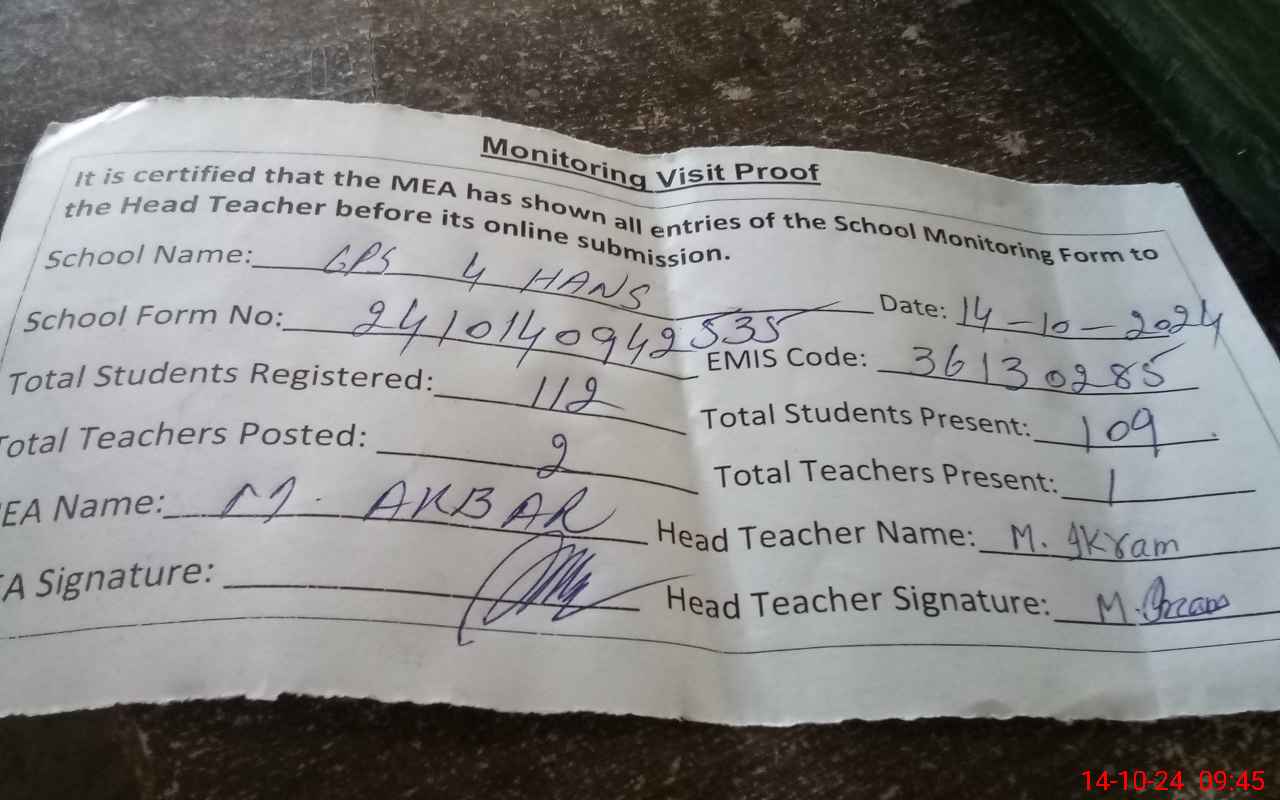 Monitoring Visit Proof
It is certified that the MEA has shown all entries of the School Monitoring Form to
the Head Teacher before its online submission.
School Name: GPS 4 HANS Date: 14-10-2024
School Form No: 2410140942535 EMIS Code: 36130285
Total Students Registered: 112 Total Students Present: 109
Total Teachers Posted: 2 Total Teachers Present: 1
EA Name: M. AKBAR Head Teacher Name: M. Ikram
A Signature: Head Teacher Signature: M.
14-10-24 09:45